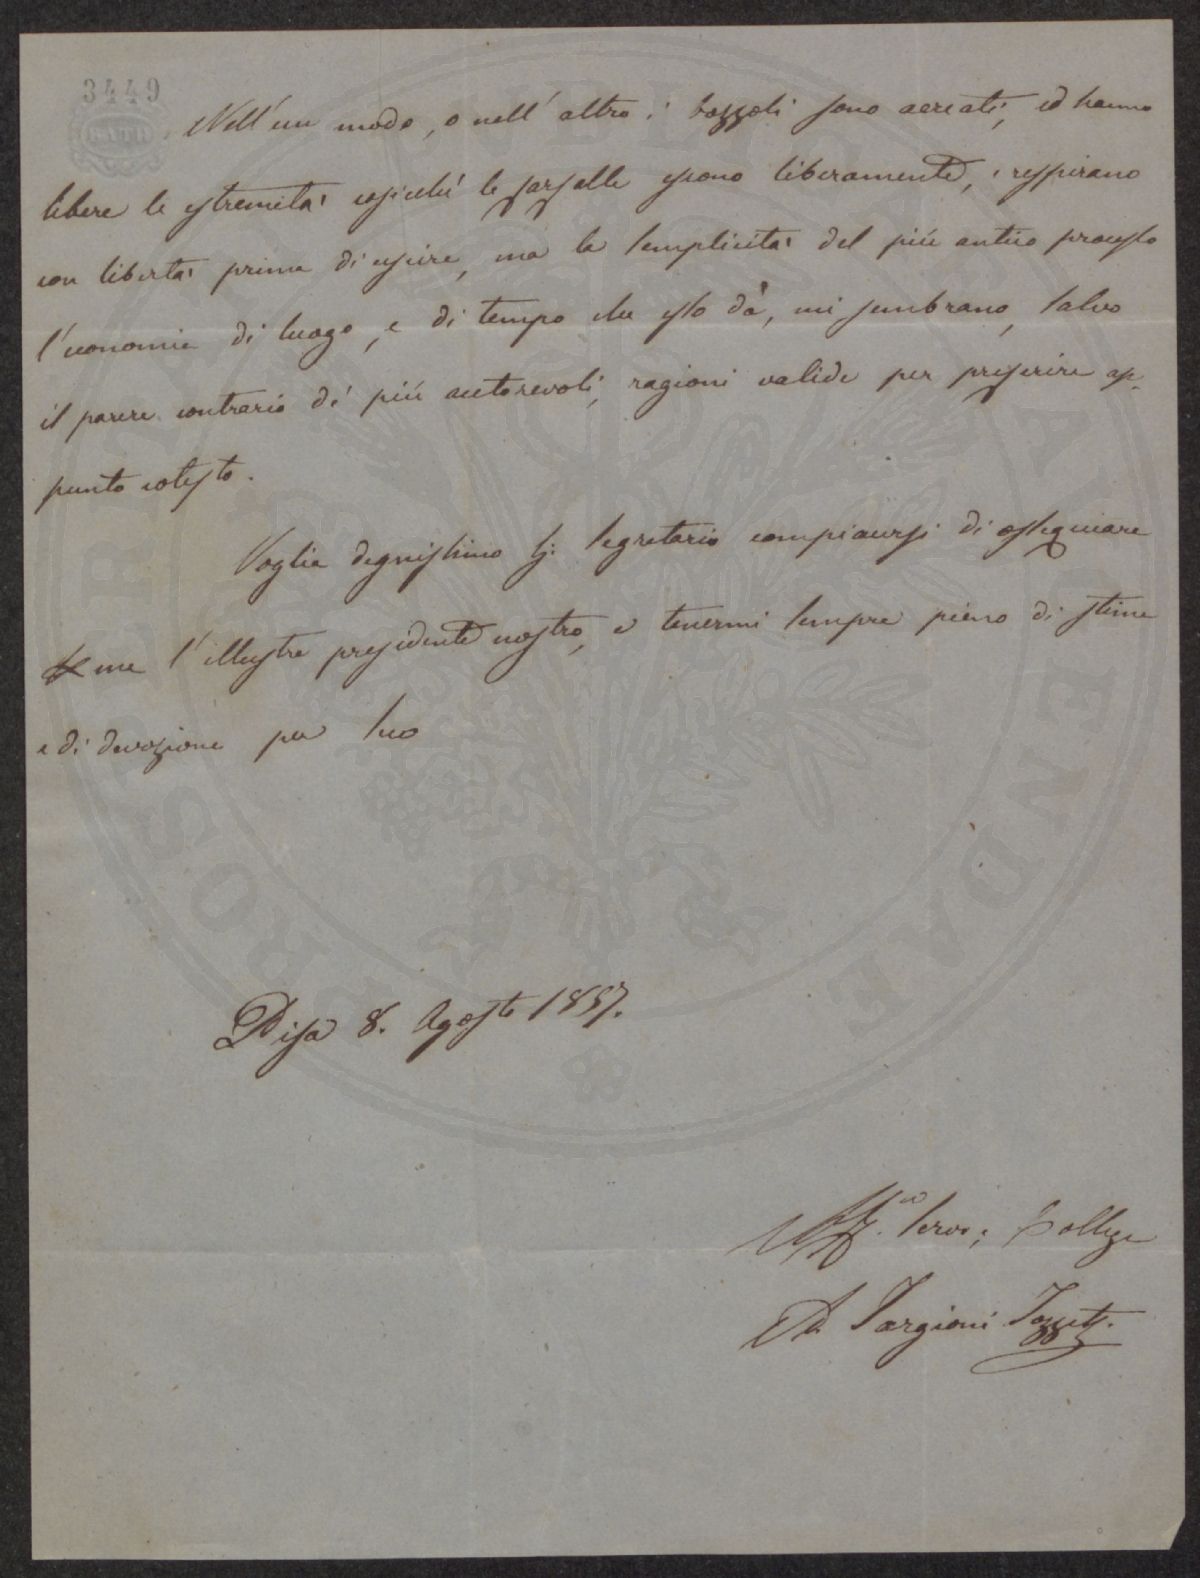 3449
BATH
Nell'un modo, o nell'altro i bozzoli sono aereati, ed hanno
libere le estremità cosicché le farfalle escono liberamente, e respirano
con libertà prima di uscire, ma la semplicità del più antico processo
l'economia di luogo, e di tempo che esso dà, mi sembrano, salvo
il parere contrario di più autorevoli, ragioni valide per preferire ap-
punto cotesto.
Voglia degnissimo Sig. Segretario compiacersi di ossequiare
me l'illustre presidente nostro, e tenermi sempre pieno di stima
e di devozione per suo
Pisa 8. Agosto 1857.
Aff.o servo e Collega
Ad Targioni Tozzetti.